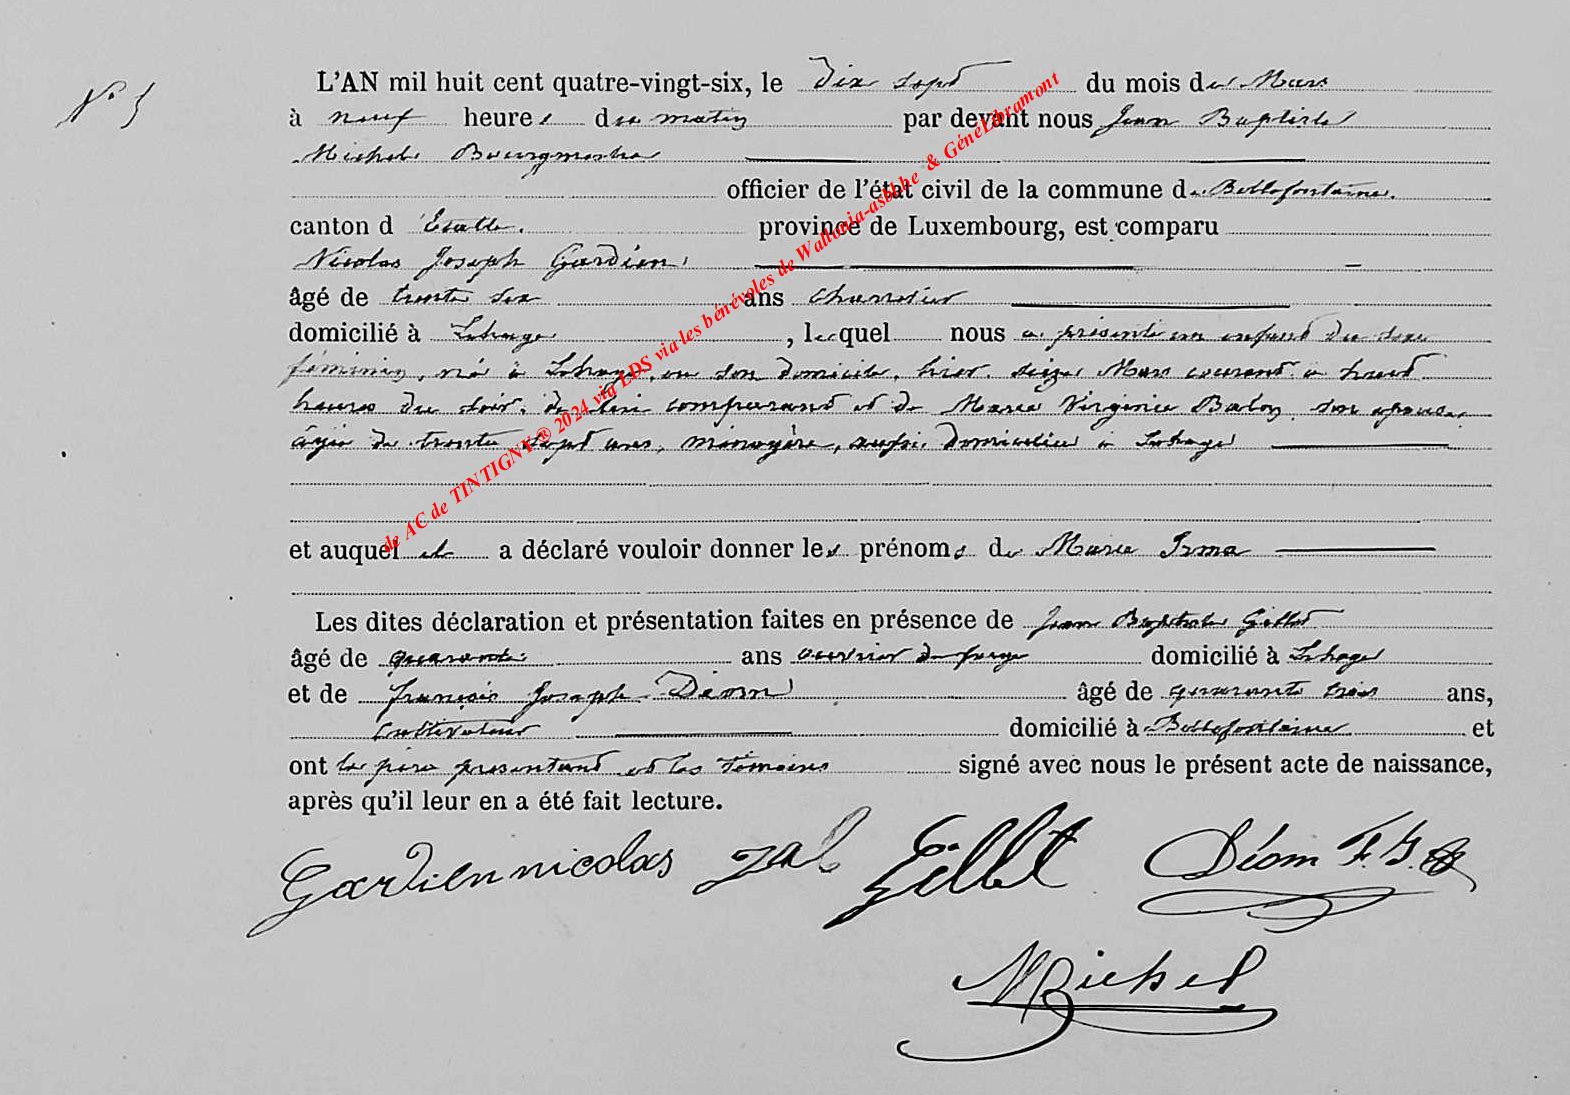 N° 5
L'AN mil huit cent quatre-vingt-six, le dix sept du mois de Mars
à neuf heures du matin par devant nous Jean Baptiste
Michel Bourgmestre
officier de l'état civil de la commune de Bellefontaine.
canton d'Etalle. province de Luxembourg, est comparu
Nicolas Joseph Gardien,
âgé de trente six ans charretier
domicilié à Lahage, lequel nous a présenté un enfant du sexe
féminin, né à Lahage, en son domicile, hier, seize Mars courant à huit
heures du soir, de lui comparant et de Marie Virginie Balon, son épouse,
âgée de trente sept ans, ménagère, aussi domiciliée à Lahage
et auquel il a déclaré vouloir donner les prénoms de Marie Irma
Les dites déclaration et présentation faites en présence de Jean Baptiste Gillet
âgé de quarante ans ouvrier de forge domicilié à Lahage
et de françois Joseph Déom âgé de quarante trois ans,
Cultivateur domicilié à Bellefontaine et
ont le père présentant et les témoins signé avec nous le présent acte de naissance,
après qu'il leur en a été fait lecture.
Gardien nicolas Gillet Déom F. J.
Michel
de AC de TINTIGNY® 2024 via LDS via les bénévoles de Wallonia-asbbbe & GéneLibramont